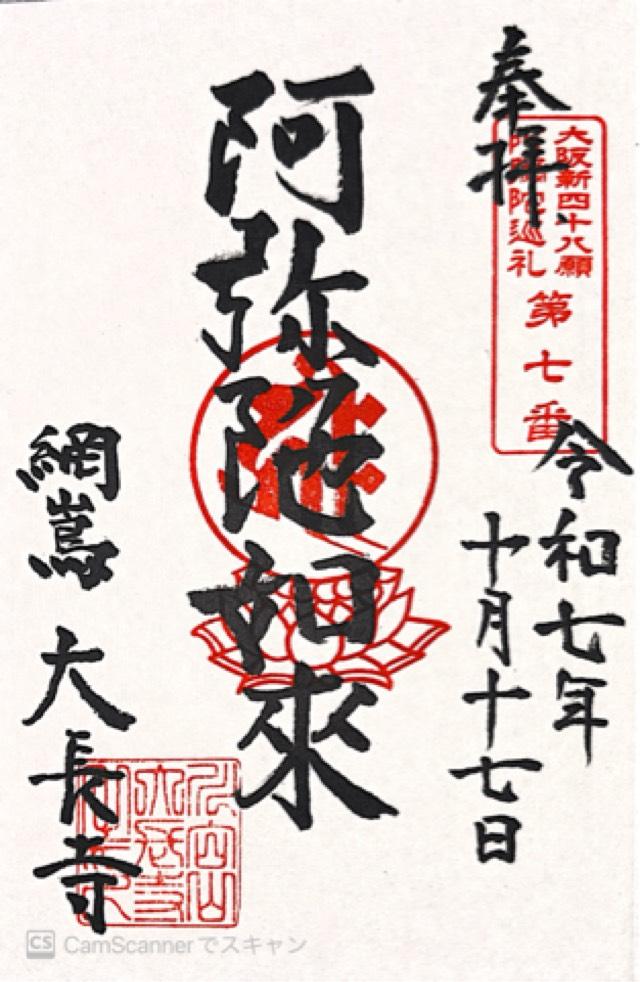 奉拝
大阪新四十八願
阿弥陀巡礼
第七番
令和七年
十月十七日
阿弥陀如來
網嶌 大長寺
CS CamScannerでスキャン